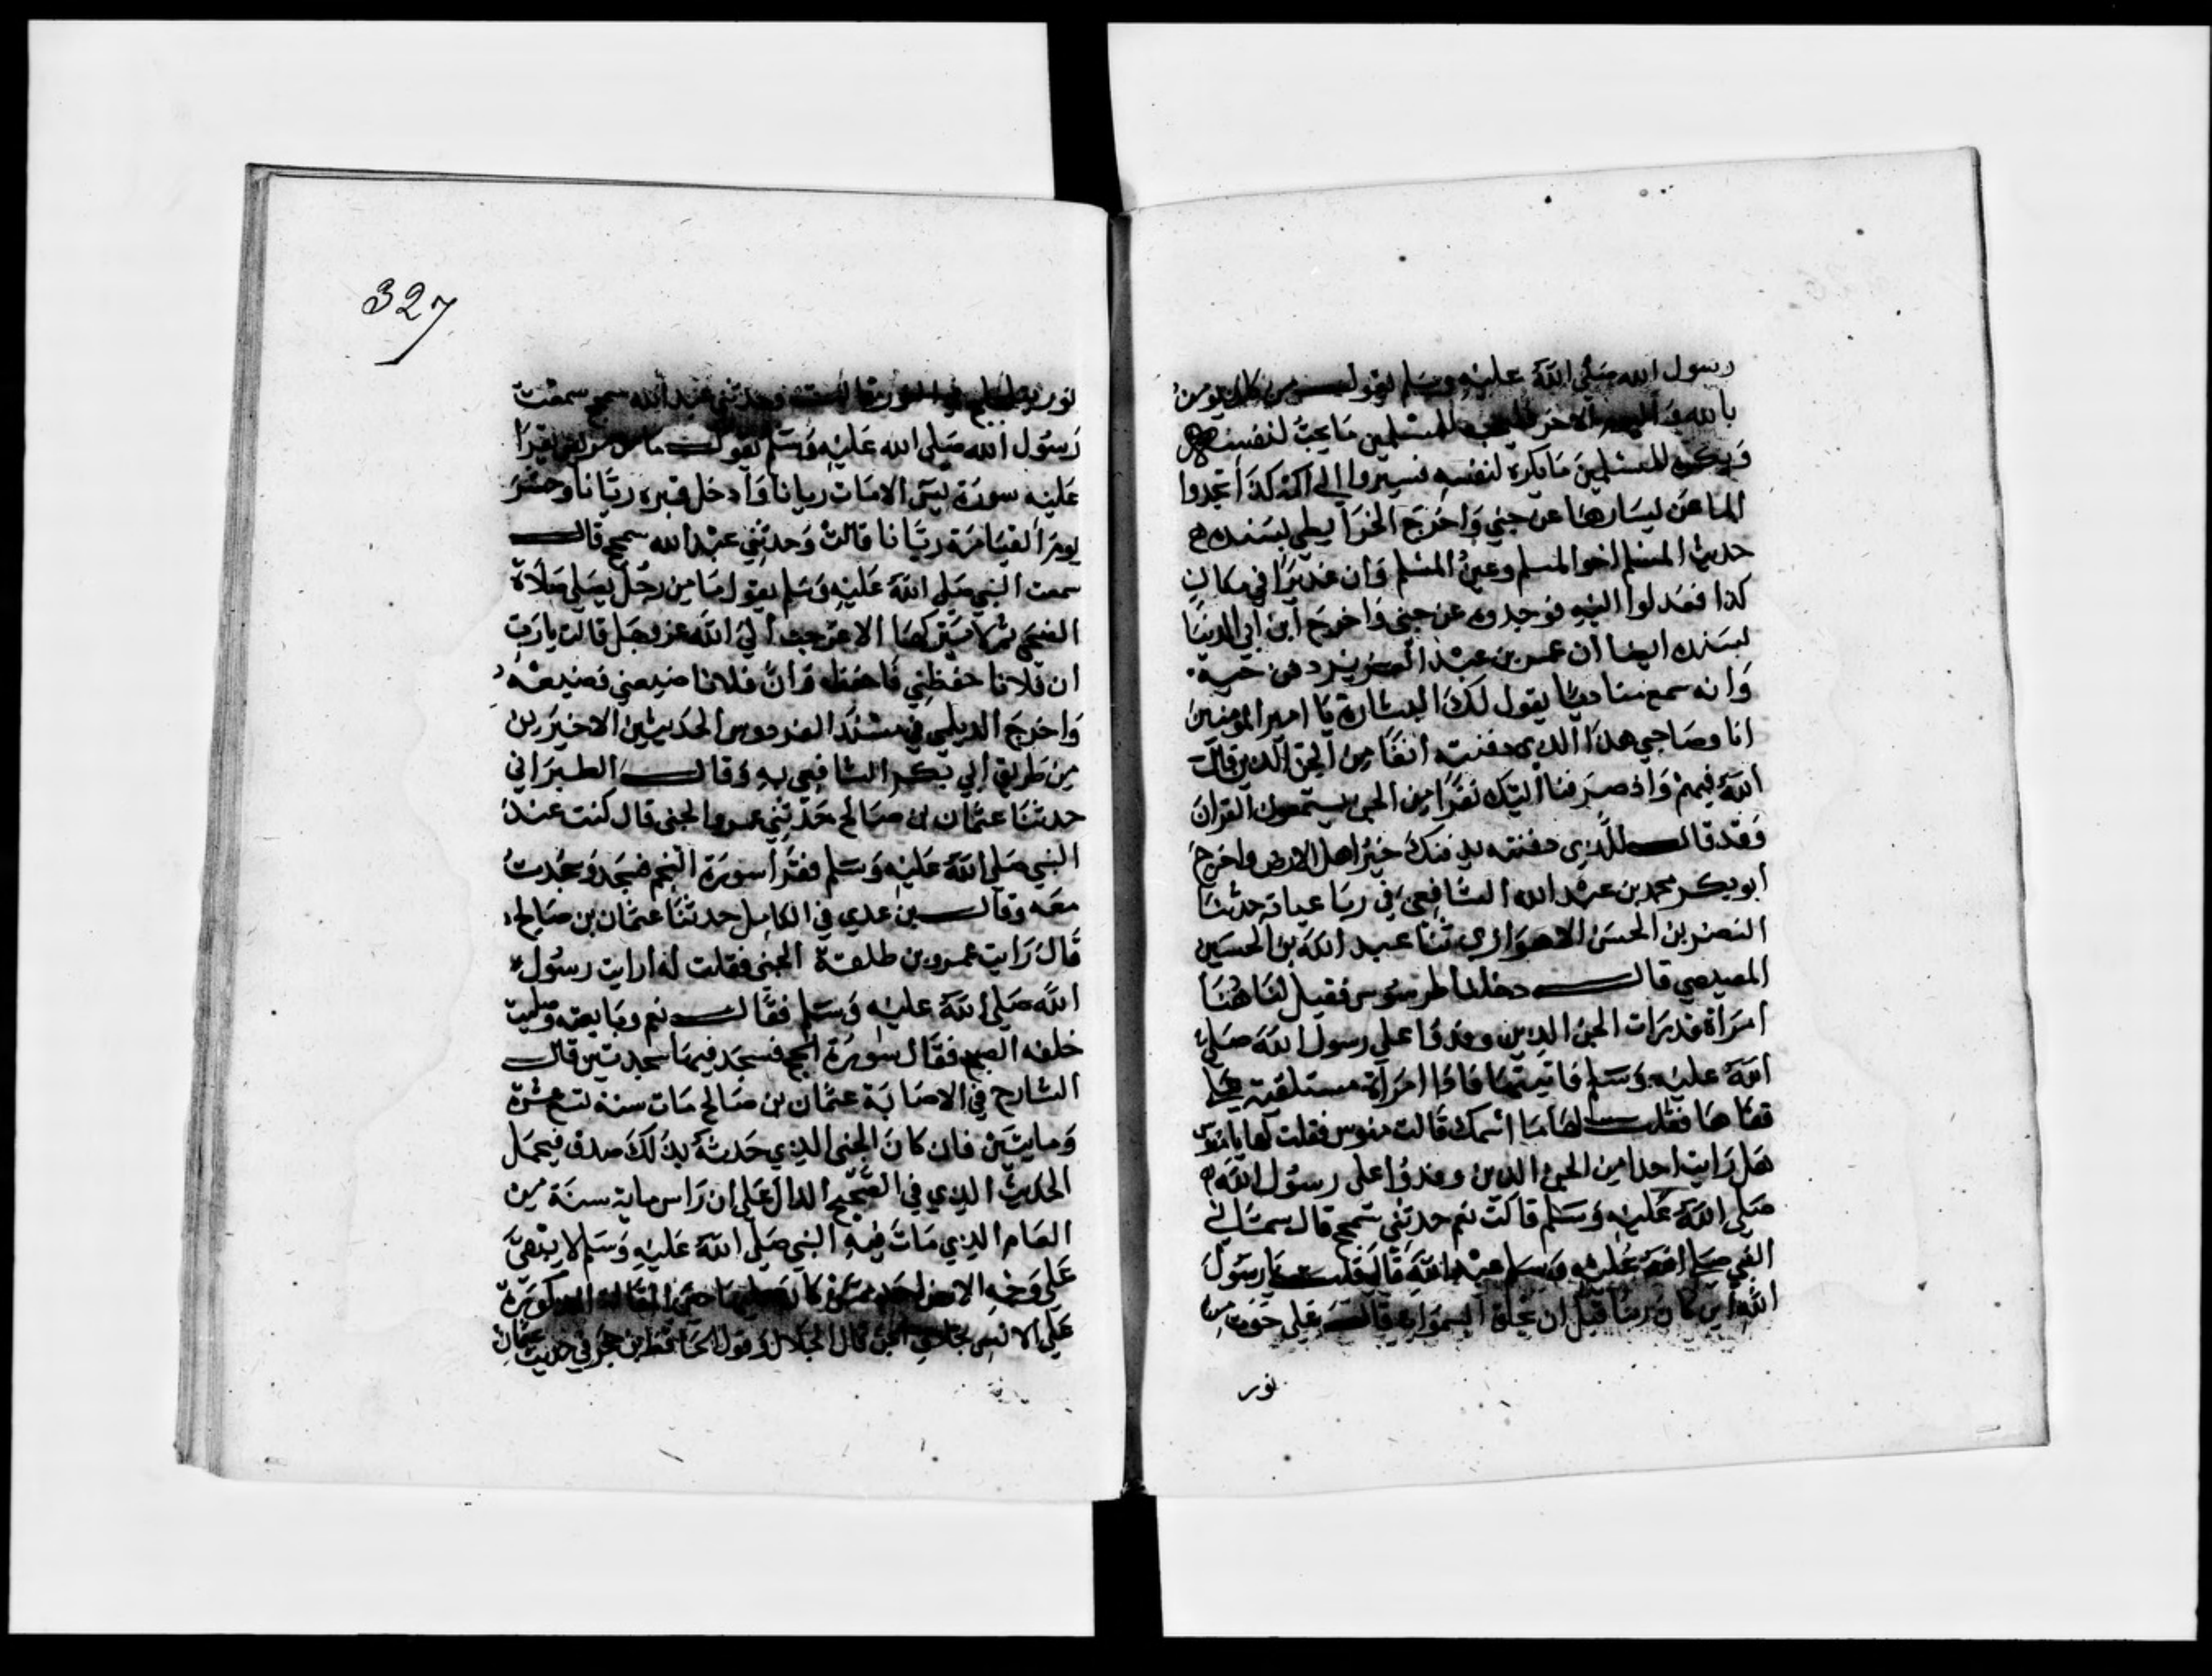 رسول الله صلى الله عليه وسلم يقول من كان يومن
بالله واليوم الاخر فليحب للمسلمين ما يحب لنفسه
ويكره للمسلمين ما يكره لنفسه فسيروا الى اكمة كذا تجدوا
الماء عن يسارها عن جني واخرج الخرايطي بسنده
حديث المسلم اخو المسلم وعين المسلم وان غديرا في مكان
كذا فعدلوا اليه فوجدوه عن جني واخرج ابن ابي الدنيا
بسنده ايضا ان عمر بن عبد العزيز دفن حية
وانه سمع مناديا يقول لك البشارة يا امير المومنين
انا وصاحبي هذا الذي دفنته انفا من الجن الذين قال
الله فيهم واذ صرفنا اليك نفرا من الجن يستمعون القران
وقد قال للذي دفنته يدفنك خير اهل الارض واخرج
ابو بكر محمد بن عبد الله الشافعي في رباعياته حدثنا
النضر بن الحسن الاهوازي ثنا عبد الله بن الحسين
المصيصي قال دخلنا طرسوس فقيل لنا هنا
امراة قد رات الجن الذين وفدوا على رسول الله صلى
الله عليه وسلم فاتيتها فاذا امراة مستلقية على
قفاها فقلت لها ما اسمك قالت منوس فقلت لها يا منوس
هل رايت احدا من الجن الذين وفدوا على رسول الله
صلى الله عليه وسلم قالت نعم حدثني سمحج قال سماني
النبي صلى الله عليه وسلم عبد الله قال قلت يا رسول
الله اين كان ربنا قبل ان يخلق السموات قال على حوت من
نور
327
نور يتلجلج في النور قالت وحدثني عبد الله سمحج سمعت
رسول الله صلى الله عليه وسلم يقول ما من مريض يقرا
عليه سورة يس الامات ريانا وادخل قبره ريانا وحشر
يوم القيامة ريانا قالت وحدثني عبد الله سمحج قال
سمعت النبي صلى الله عليه وسلم يقول ما من رجل يصلي صلاة
الضحى ثم تركها الا عرجت الى الله عز وجل قالت يا رب
ان فلانا حفظني فاحفظه وان فلانا ضيعني فضيعه
واخرج الديلمي في مسند الفردوس الحديثين الاخيرين
من طريق ابي بكر الشافعي به وقال الطبراني
حدثنا عثمان بن صالح حدثني عمرو الجني قال كنت عند
النبي صلى الله عليه وسلم فقرا سورة النجم فسجد وسجدت
معه وقال بن عدي في الكامل حدثنا عثمان بن صالح
قال رايت عمرو بن طلقة الجني فقلت له ارايت رسول
الله صلى الله عليه وسلم فقال نعم وبايعته وصليت
خلفه الصبح فقال سورة الحج فسجد فيها سجدتين قال
الشارح في الاصابة عثمان بن صالح مات سنة تسع عشرة
ومايتين فان كان الجني الذي حدثه بذلك صدق فيحمل
الحديث الذي في الصحيح الدال على ان راس ماية سنة من
العام الذي مات فيه النبي صلى الله عليه وسلم لا يبقى
على وجه الارض احد ممن كان عليها حين المقالة المذكورة
على الانس بخلاف الجن قال الجلال وقول الحافظ ابن حجر في حديث عثمان